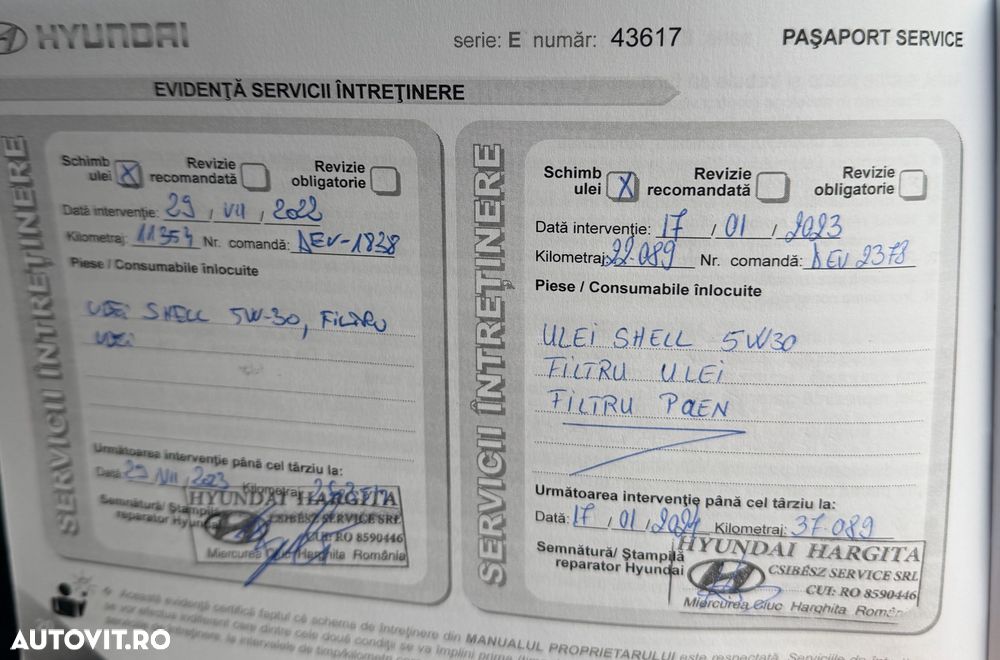 HYUNDAI
serie: E număr: 43617
PAŞAPORT SERVICE
EVIDENŢĂ SERVICII ÎNTREŢINERE
SERVICII ÎNTREŢINERE
Schimb ulei X Revizie recomandată Revizie obligatorie
Dată intervenţie: 29 / VII / 2022
Kilometraj: 11354 Nr. comandă: DEV-1838
Piese / Consumabile înlocuite
ULEI SHELL 5W-30, FILTRU
ULEI
Următoarea intervenţie până cel târziu la:
Dată: 29 / VII / 2023 Kilometraj:
Semnătură/ Ştampilă
reparator Hyundai
HYUNDAI HARGITA
CSIBÉSZ SERVICE SRL
CUI: RO 8590446
Miercurea Ciuc Harghita România
SERVICII ÎNTREŢINERE
Schimb ulei X Revizie recomandată Revizie obligatorie
Dată intervenţie: 17 / 01 / 2023
Kilometraj: 22.089 Nr. comandă: DEV 2378
Piese / Consumabile înlocuite
ULEI SHELL 5W30
FILTRU ULEI
FILTRU POLEN
Următoarea intervenţie până cel târziu la:
Dată: 17 / 01 / 2024 Kilometraj: 37.089
Semnătură/ Ştampilă
reparator Hyundai
HYUNDAI HARGITA
CSIBÉSZ SERVICE SRL
CUI: RO 8590446
Miercurea Ciuc Harghita Român
Această evidenţă certifică faptul că schema de întreţinere din MANUALUL PROPRIETARULUI este respectată. Serviciile de
se vor efectua indiferent care dintre cele două condiţii se va împlini prima
AUTOVIT.RO